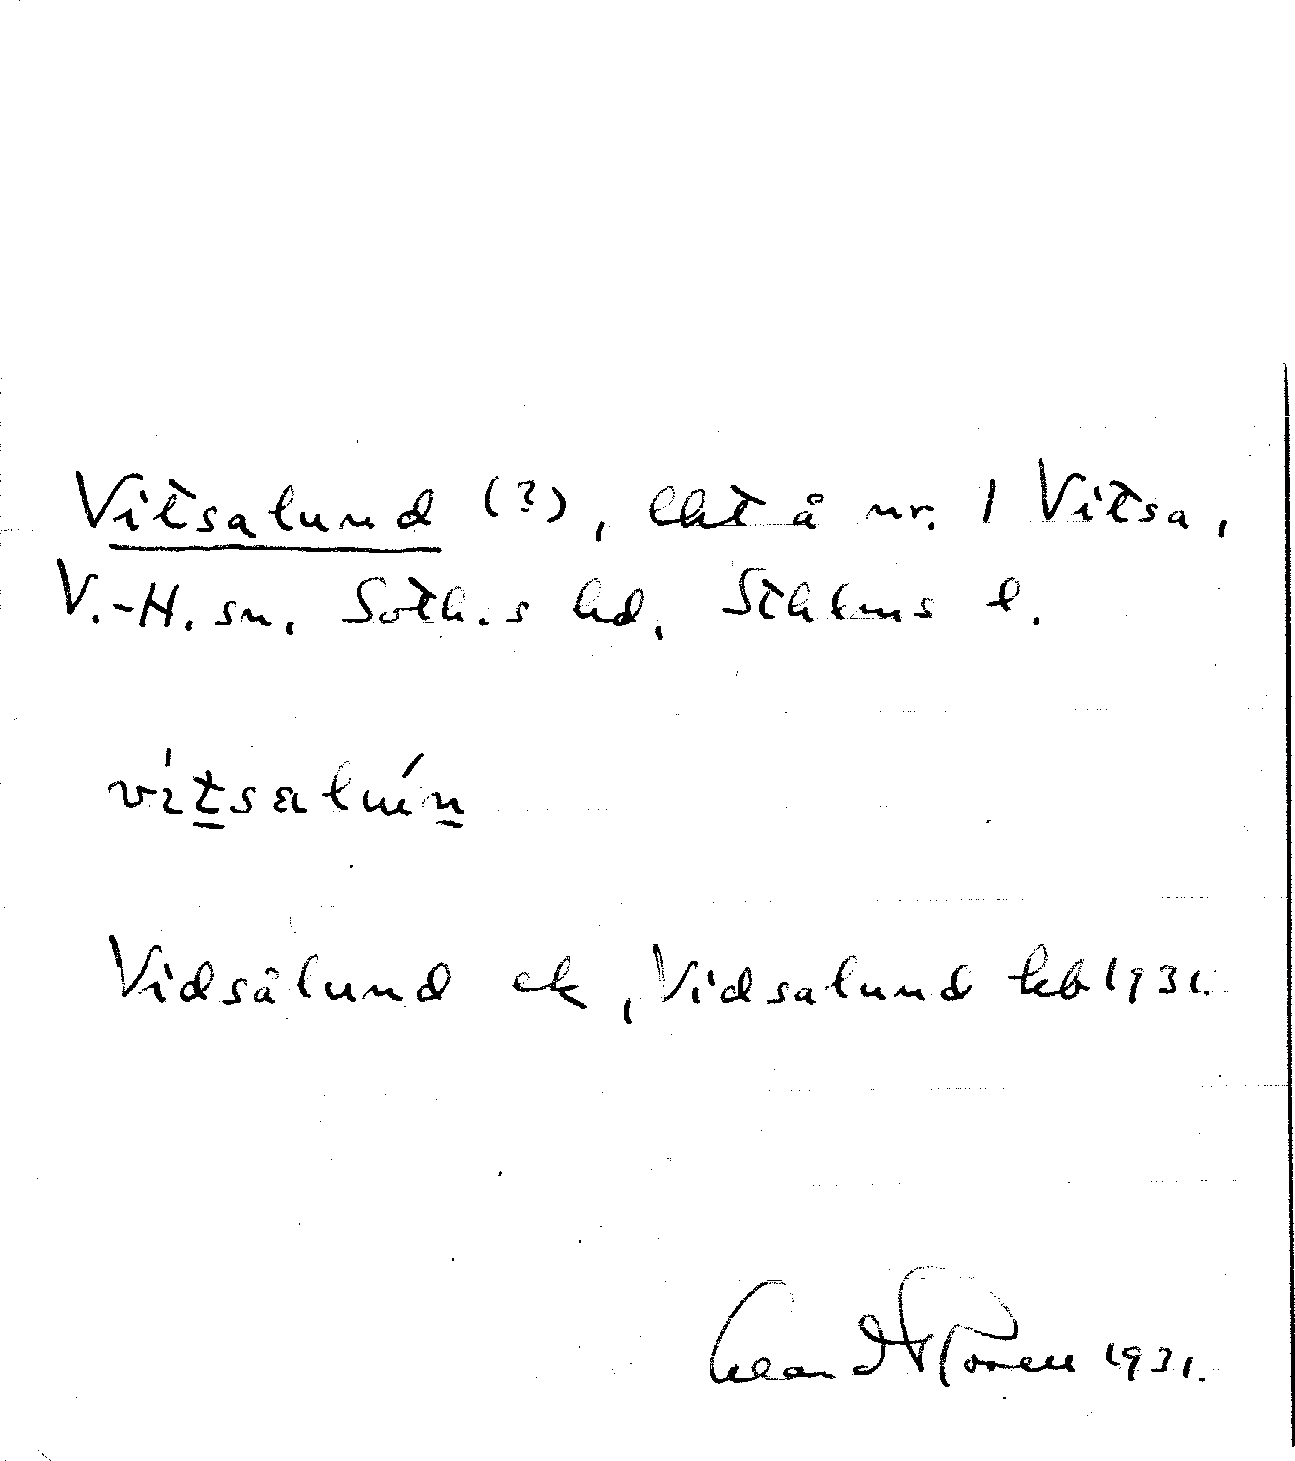 Vitsalund (?), lht å nr. 1 Vitsa,
V.-H. sn. Soth.s hd, Sthlms l.
vítsalún
Vidsålund ek, Vidsalund kb 1931.
1931.